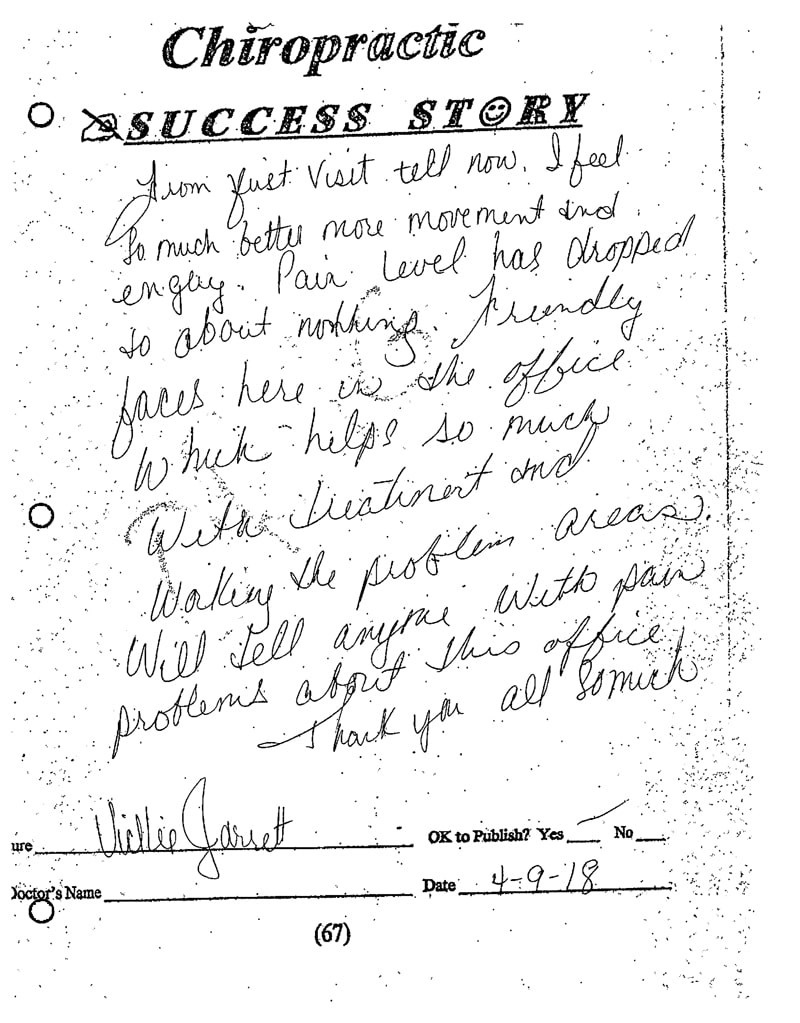 Chiropractic
SUCCESS STORY
From first Visit tell now. I feel
So much better more movement and
engery. Pain Level has dropped
to about nothing. Friendly
faces here in the office
Which helps so much
With treatment and
Working the problem areas.
Will tell anyone with pain
problems about this office
Thank you all So much
ure Jarrett OK to Publish? Yes No
Doctor's Name Date 4-9-18
(67)